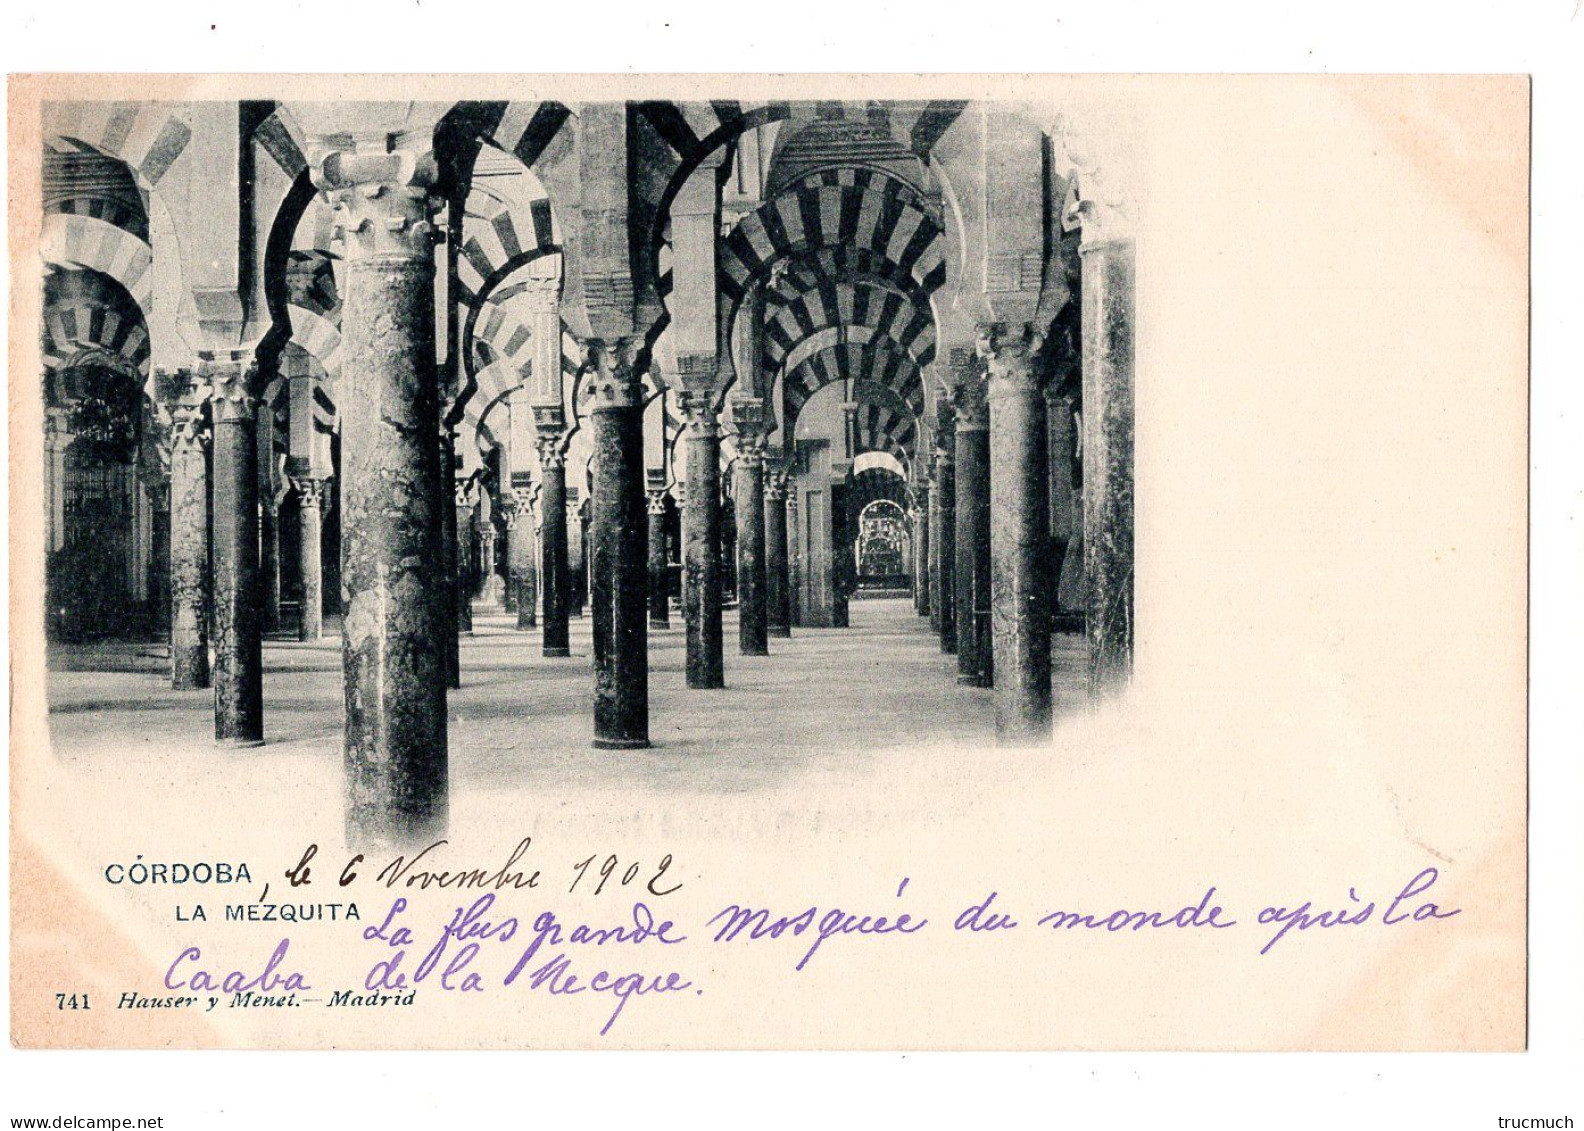 CÓRDOBA, le 6 Novembre 1902
LA MEZQUITA
La plus grande Mosquée du monde après la
Caaba de la Mecque.
741 Hauser y Menet.—Madrid
www.delcampe.net
trucmuch